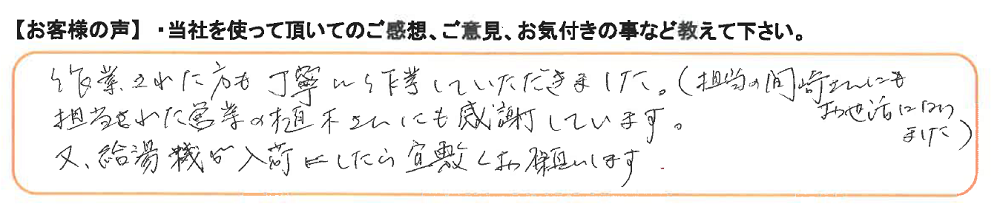 【お客様の声】 ・当社を使って頂いてのご感想、ご意見、お気付きの事など教えて下さい。
作業された方も丁寧に作業していただきました。(担当の間崎さんにも
お世話になり
ました)
担当された営業の植木さんにも感謝しています。
又、給湯機が入荷にしたら宜敷くお願いします.